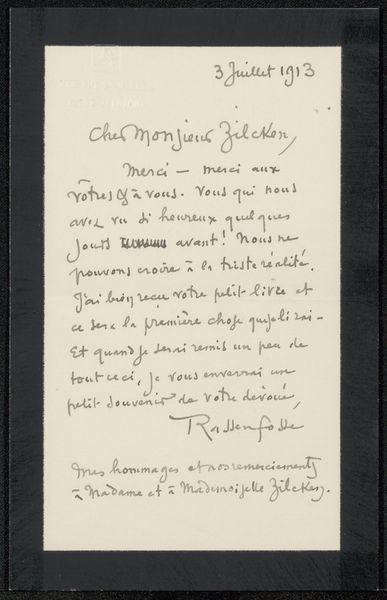 3 Juillet 1913
Cher Monsieur Zilcken,
Merci — merci aux
vôtres & à vous. Vous qui nous
avez vu si heureux quelques
jours avant! Nous ne
pouvons croire à la triste réalité.
J'ai bien reçu votre petit livre et
ce sera la première chose que je lirai –
Et quand je serai remis un peu de
tout ceci, je vous enverrai un
petit souvenir de votre dévoué,
Rassenfosse
Mes hommages et nos remerciements
à Madame et à Mademoiselle Zilcken.